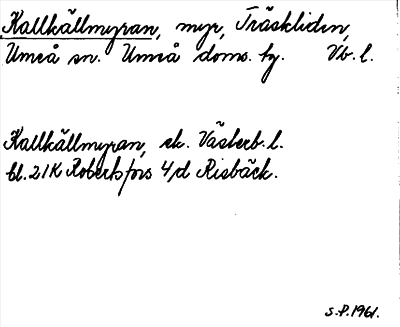 Kallkällmyran, myr, Träskliden,
Umeå sn. Umeå doms. hg. Vb. l.
Kallkällmyran, ek. Västerb. l.
bl. 21K Robertsfors 4/d Risbäck.
S.P. 1961.